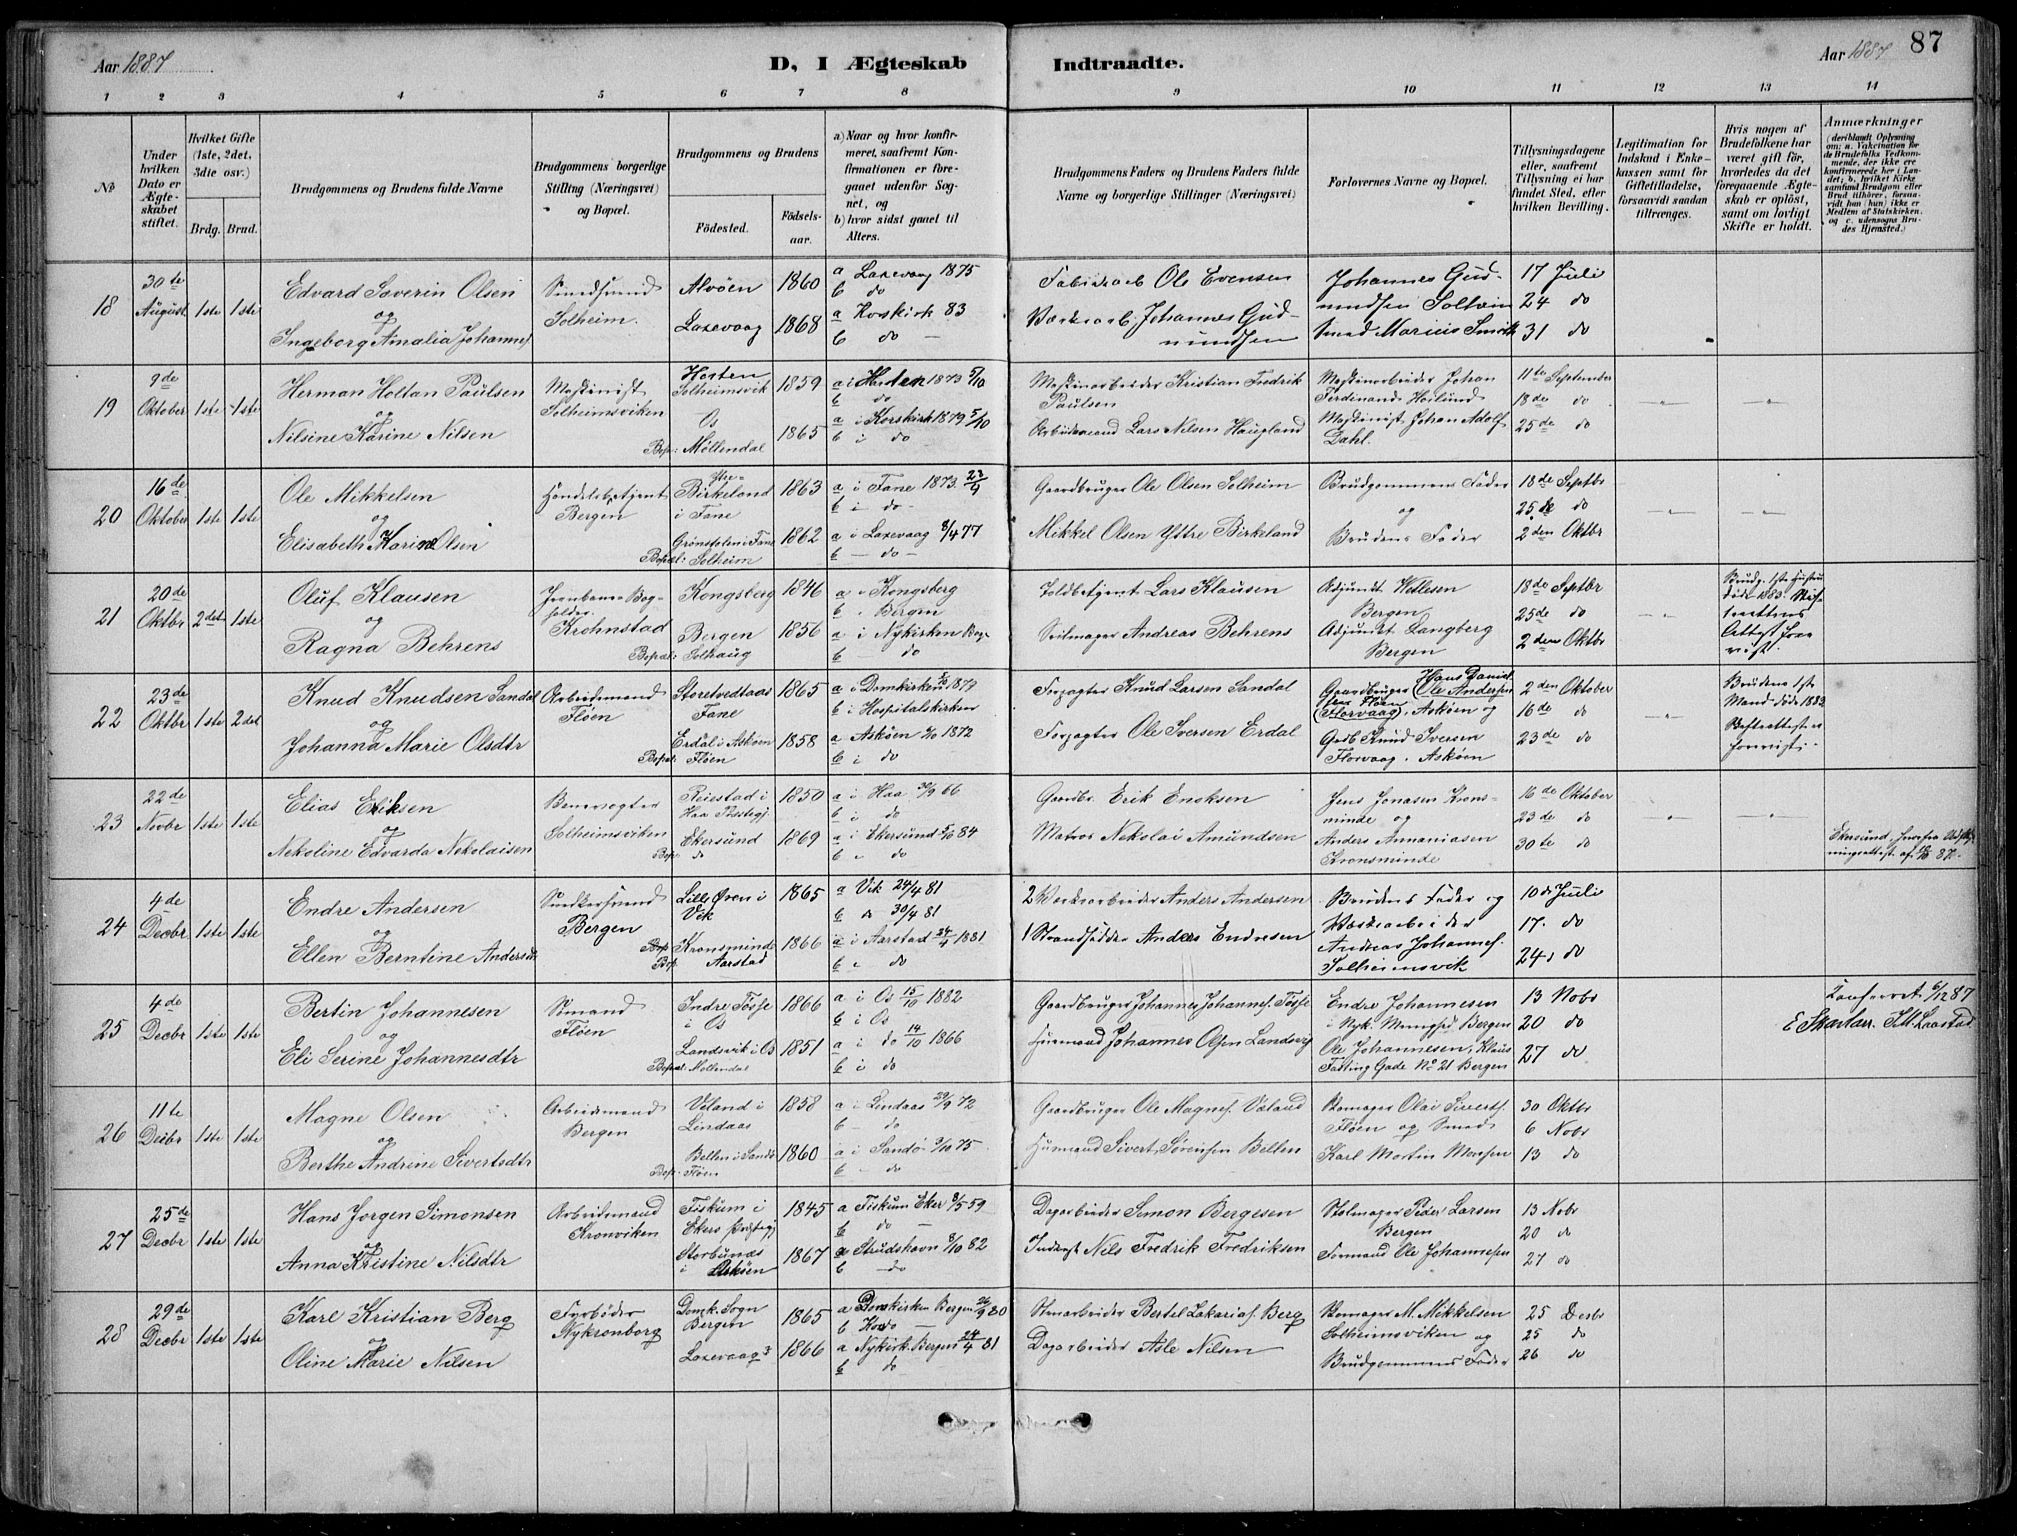 Aar 1887
D, I Ægteskab Indtraadte.
Aar 1887 87
1 2 3 4 5 6 7 8 9 10 11 12 13 14
No
Under hvilken Dato er Ægteskabet stiftet.
Hvilket Gifte (1ste, 2det, 3die osv.)
Brdg. Brud.
Brudgommens og Brudens fulde Navne
Brudgommens borgerlige Stilling (Næringsvei) og Bopæl.
Brudgommens og Brudens
Fødested.
Fødselsaar.
a) Naar og hvor konfirmeret, saafremt Konfirmationen er foregaaet udenfor Sognet, og
b) hvor sidst gaaet til Alters.
Brudgommens Faders og Brudens Faders fulde Navne og borgerlige Stillinger (Næringsvei)
Forlovernes Navne og Bopæl.
Tillysningsdagene eller, saafremt Tillysning ei har fundet Sted, efter hvilken Bevilling.
Legitimation for Indskud i Enkekassen samt for Giftetilladelse, forsaavidt saadan tiltrænges.
Hvis nogen af Brudefolkene har været gift før, hvorledes da det foregaaende Ægteskab er opløst, samt om lovligt Skifte er holdt.
Anmærkninger
(deriblandt Oplysning om: a. Vakcination for de Brudefolks Vedkommende, der ikke ere konfirmerede her i Landet; b. hvilket Kirkesamfund Brudgom eller Brud tilhører, forsaavidt han (hun) ikke er Medlem af Statskirken, og c. udensogns Brudes Hjemsted.)
18 30te August 1ste 1ste
Edvard Severin Olsen
og
Ingeborg Amalia Johannes.
Smedsvend
Solheim.
Alvøen 1860
Laxevaag 1868
a Laxevaag 1875
b do
a Korskirk 83
b do —
Fabrikarb Ole Evensen
Værksarb. Johannes Gudmundsen
Johannes Gudmundsen Solheim
Smed Marius Smith
17 Juli
24 do
31 do
19 9de Oktober 1ste 1ste
Herman Holtan Paulsen
og
Nilsine Karine Nilsen
Maskinist
Solheimsviken
Horten
Solheimsvik 1859
Os 1865
Bopæl: Møllendal
a i Horten 1873 5/10
b do
a i Korskirk 1879 5/10
b i do
Maskinarbeider Kristian Fredrik Paulsen
Arbeidsmand Lars Nilsen Haugland
Maskinarbeider Johan Ferdinand
Maskinist Johan Adolf Dahl.
11te September
18de do
25de do
20 16de Oktober 1ste 1ste
Ole Mikkelsen
og
Elisabeth Karine Olsen
Handelsbetjent
Bergen
Ytre Birkeland i Fane 1863
1862
Bopæl: Solheim
a i Fane 1873
b i do-
a i Laxevaag 8/4 77
b — do —
Gaardbruger Ole Olsen Solheim
Mikkel Olsen Yttre Birkeland
Brudgommens Fader
og
Brudens Fader
18de Septbr
25de do
2den Oktbr
21 20de Oktbr 2det 1ste
Oluf Klausen
og
Ragna Behrens
Jernbane-Bogholder.
Krohnstad
Kongsberg 1846
Bergen 1856
Bopæl: Solhaug
a i Kongsberg
b i Bergen
a i Nykirken Berg.
b — do
Toldbetjent Lars Klausen
Seilmager Andreas Behrens
Adjunkt Wetlesen
Bergen
Adjunkt Langberg
Bergen
18de Septbr
25de do
2den Oktbr
Brudg. 1ste Hustru døde 1883. Skifterettens Attest forevist.
22 23de Oktbr 1ste 2det
Knud Knudsen Sandal
og
Johanna Marie Olsdtr
Arbeidsmand
Fløen
Storetvedtaas
Fane 1865
Erdal i Askøen 1858
Bopæl: Fløen
a i Domkirken 1879
b i Hospitalskirken
a i Askøen 1872
b i do
Forpagter Knud Larsen Sandal
Forpagter Ole Iversen Erdal
Gaardbruger Hans Daniel
Ole Andersen
Florvaag, Askøen og
Gdb Knud Iversen
Florvaag, Askøen
2den Oktober
16de do
23de do
Brudens 1ste Mand døde 1882
Skifteattest er forevist.
23 22de Novbr 1ste 1ste
Elias Eriksen
og
Nekoline Edvarda Nekolaisen
Banevogter
Solheimsviken
Reiestad i Haa Præstegj. 1850
Ekersund 1869
Bop: do
a i Haa 66
b i do
a i Ekersund 84
b „ do
Gaardbr. Erik Enoksen
Matros Nekolai Amundsen
Jens Jonasen Kronsminde og
Anders Annaniasen
Kronsminde
16de Oktober
23de do
30te do
24 4de Decbr 1ste 1ste
Endre Andersen
og
Ellen Berntine Andersdtr
Snedkersvend
Bergen
Vik 1865
Kronsminde 1866
Bop. Aarstad
a Vik 24/4 81
b do 30/4 81
a i Aarstad 24/4 1881
b „ do
2 Værksarbeider Anders Andersen
1 Strandsidder Anders Endresen
Brudens Fader og
Værksarbeider
Andreas Johannes.
Solheimsvik
10de Juli
17. do
24. do
25 4de Decbr 1ste 1ste
Bertin Johannesen
og
Eli Serine Johannesdtr
Sømand
Fløen
Indre Tøsse i Os 1866
Landsvik i Os 1851
Bopæl: Møllendal
a i Os 15/10 1882
b i Os
a i do 14/10 1866
b i do
Gaardbruger Johannes Johannes. Tøsse
Husmand Johannes Olsen Landsvig
Endre Johannesen
i Nyk. Menighed Bergen
Ole Johannesen, Klaus
Fasting Gade No 21 Bergen
13 Nobr
20 do
27 do
26 11te Decbr 1ste 1ste
Magne Olsen
og
Berthe Andrine Sivertsdtr
Arbeidsmand
Bergen
Lindaas 1858
1860
Bop: Fløen
a i Lindaas 29/9 72
b — do
a i Sandø 75
b — do
Gaardbruger Ole Magnes.
Husmand Sivert Sørensen Belten
Skomager Olai Siverts.
Fløen og Smed
Karl Martin Monsen
30 Oktbr
6 Nobr
13 do
27 25de Decbr 1ste 1ste
Hans Jørgen Simonsen
og
Anna Kristine Nilsdtr
Arbeidsmand
Kronviken
Fiskum i
Ekers Præstegj 1845
i Askøen 1867
a Fiskum Eker 8/5 59
b do —
a Strudshavn 8/10 82
b — do
Dagarbeider Simon Bergesen
Inderst Nils Fredrik Fredriksen
Stolmager Peder Larsen
Bergen
Formand Ole Johannesen
13 Nobr
20 do
27 do
28 29de Decbr 1ste 1ste
Karl Kristian Berg
og
Oline Marie Nilsen
Fyrbøder
Nykronborg
Domk. Sogn
Bergen 1865
Laxevaag 1866
a Domkirken Bergen 26/9 80
b do —
a Nykirk. Bergen 24/4 81
b do
Stenarbeider Bertel Zakarias. Berg
Dagarbeider Asle Nilsen
Skomager M. Mikkelsen
Solheimsviken og
Brudgommens Fader
25 Decbr
25 do
26 do